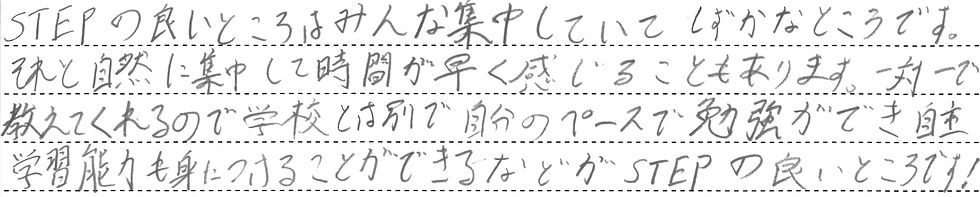 STEPの良いところはみんな集中していてしずかなところです。
それと自然に集中して時間が早く感じることもあります。一対一で
教えてくれるので学校とは別で自分のペースで勉強ができ自主
学習能力も身につけることができるなどがSTEPの良いところです!